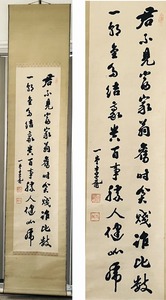 君不見富家翁舊時貧賤誰比數
一朝金多結豪貴百事勝人健如虎
君不見富家翁舊時貧賤誰比數
一朝金多結豪貴百事勝人健如虎